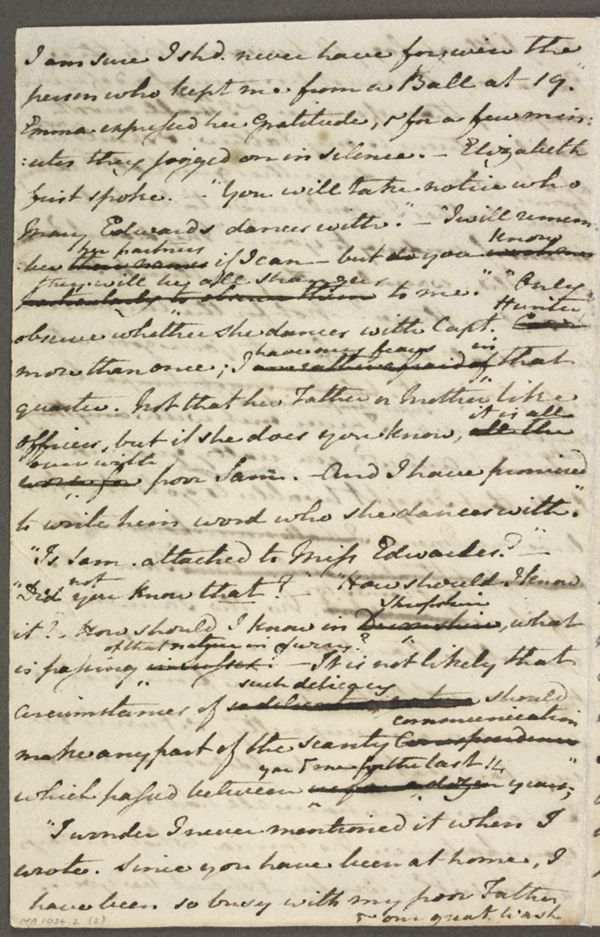 I am sure I shd. never have forgiven the
person who kept me from a Ball at 19."
Emma expressed her Gratitude, & for a few min:
:utes they jogged on in silence. — Elizabeth
first spoke. — "You will take notice who
Mary Edwards dances with." — "I will remem:
her partners know
:ber their names if I can — but do you
they will be all strangers
particularly to observe them to me." "Only
Hunter
observe whether she dances with Capt.
have my fears in
more than once; I am rather afraid of that
quarter. Not that her Father or Mother like
it is all
officers, but if she does you know, all the
over with
worse for poor Sam. — And I have promised
to write him word who she dances with."
"Is Sam. attached to Miss Edwardes?" —
not
"Did you know that?" — "How should I know
Shropshire
it? How should I know in, what
of that nature in Surry?
is passing — It is not likely that
such delicacy
circumstances of so delicate a nature should
communication
make any part of the scanty Correspondence
you & me for the last 14
which passed between us for a dozen years;"
"I wonder I never mentioned it when I
wrote. Since you have been at home, I
have been so busy with my poor Father
& our great Wash
MA 1034.2 (2)